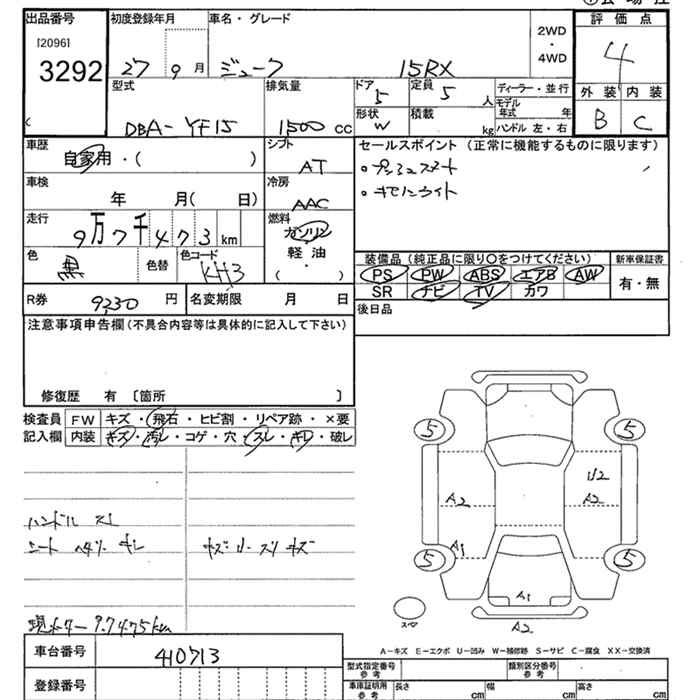 出品番号 初度登録年月 車名・グレード 2WD ・ 4WD 評価点
[2096]
3292 27 9 月 ジューク 15RX 4
型式 排気量 ドア 5 定員 5 人 ディーラー・並行 外装 内装
DBA-YF15 1500 cc 形状 W 積載 kg モデル年式 年 ハンドル 左・右 B C
車歴 自家用・( ) シフト AT セールスポイント (正常に機能するものに限ります)
車検 年 月( 日) 冷房 AAC ・プッシュスタート
走行 9万7千473km 燃料 ガソリン 軽油 ( ・ )
色 黒 色替 色コード KH3
装備品 (純正品に限り○をつけてください) 新車保証書
PS PW ABS エアB AW 有・無
SR ナビ TV カワ
R券 9230 円 名変期限 月 日 後日品
注意事項申告欄(不具合内容等は具体的に記入して下さい)
修復歴 有 〔箇所 〕
検査員 FW キズ・飛石・ヒビ割・リペア跡・×要
記入欄 内装 キズ・汚レ・コゲ・穴・スレ・キレ・破レ
5 5
U2
A2 A2
ハンドル スレ
シート ヘタリ キレ
A1
5 5
A1
スペア
A2
現メーター 97475km
A-キズ E-エクボ U-凹み W-補修跡 S-サビ C-腐食 XX-交換済
車台番号 410713 型式指定番号 参考 類別区分番号 参考
登録番号 車庫証明用 参考 長さ cm 幅 cm 高さ cm